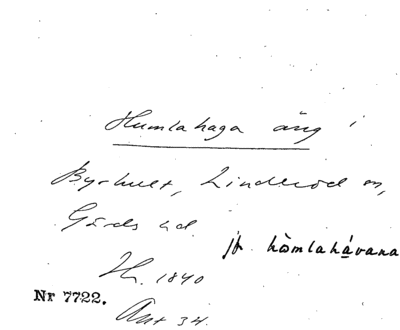 Humlahaga äng i
Byrhult, Linderöd sn,
Gärds hd.
jfr hòmlahávana
1840
Nr 7722.
Ant 34.